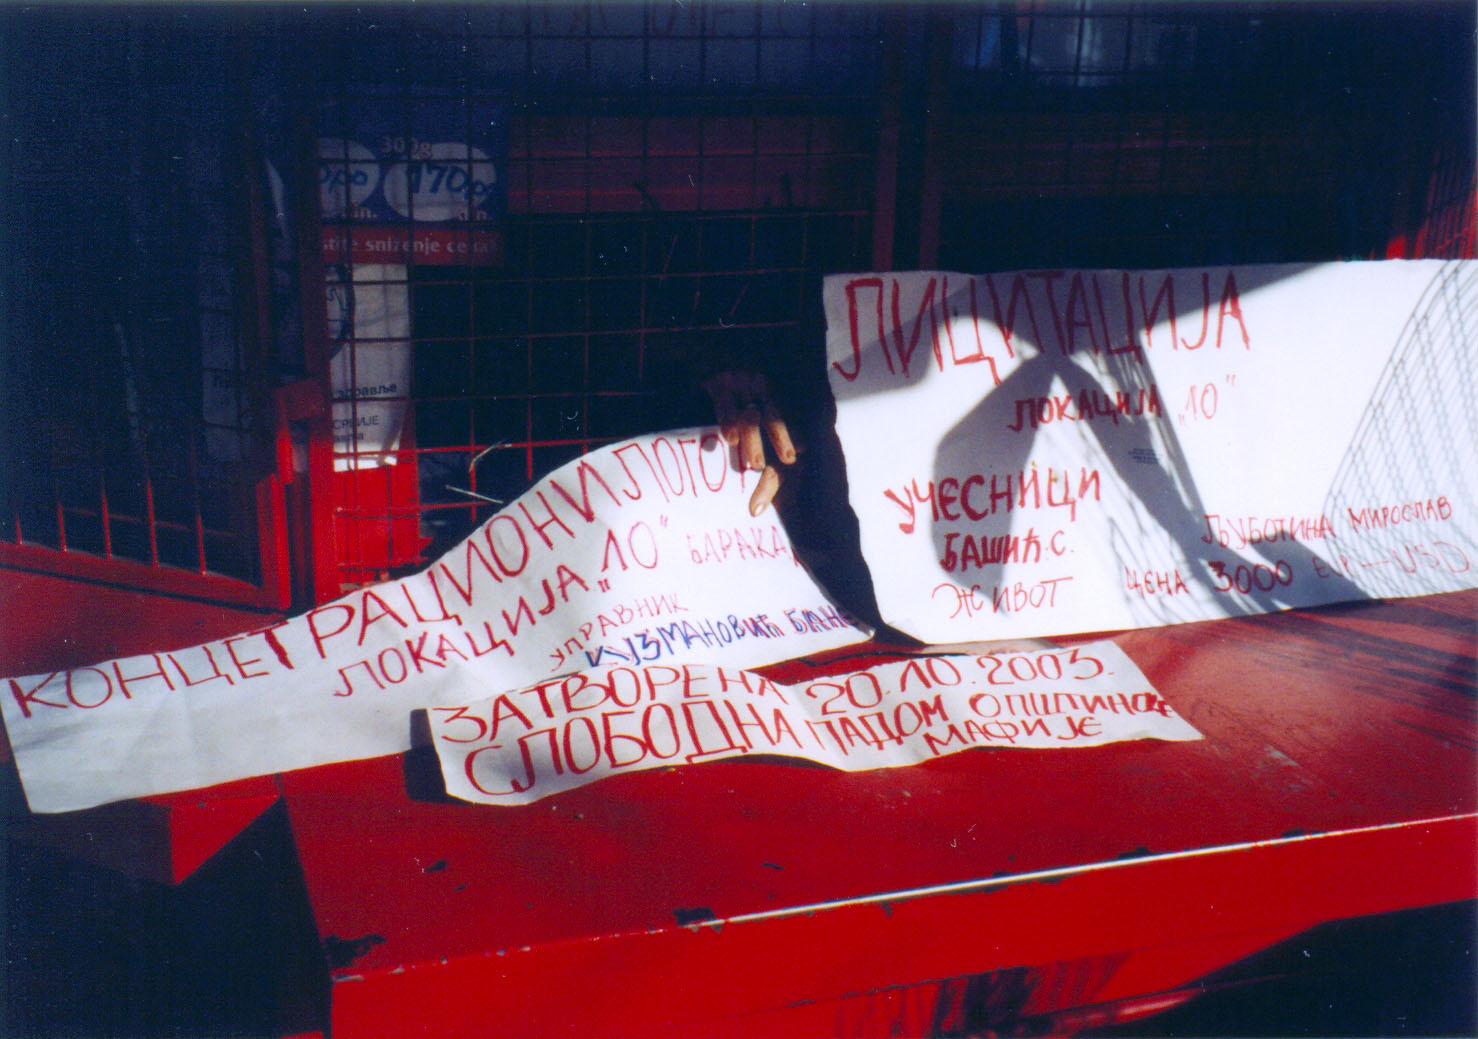 300g
170
snizenje
СРБИЈЕ
ЛИЦИТАЦИЈА
ЛОКАЦИЈА „10"
УЧЕСНИЦИ
БАШИЋ.С. ЉУБОТИНА МИРОСЛАВ
ЖИВОТ ЦЕНА 3000 EUR—USD
КОНЦЕТРАЦИОНИ ЛОГОР
ЛОКАЦИЈА „10" БАРАКА
УПРАВНИК
КУЗМАНОВИЋ БАНЕ
ЗАТВОРЕНА 20.10.2003.
СЛОБОДНА ПАДОМ ОПШТИНСКЕ
МАФИЈЕ